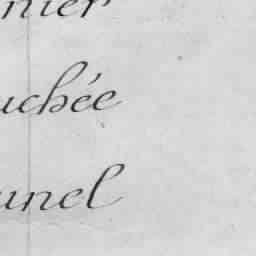 nier
uchée
unel